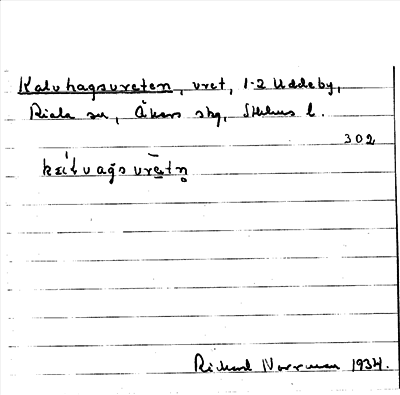 Kalvhagsvreten, vret, 1-2 Uddeby,
Riala sn, Åkers skg, Sthlms l.
302
Richard Norrman 1934.